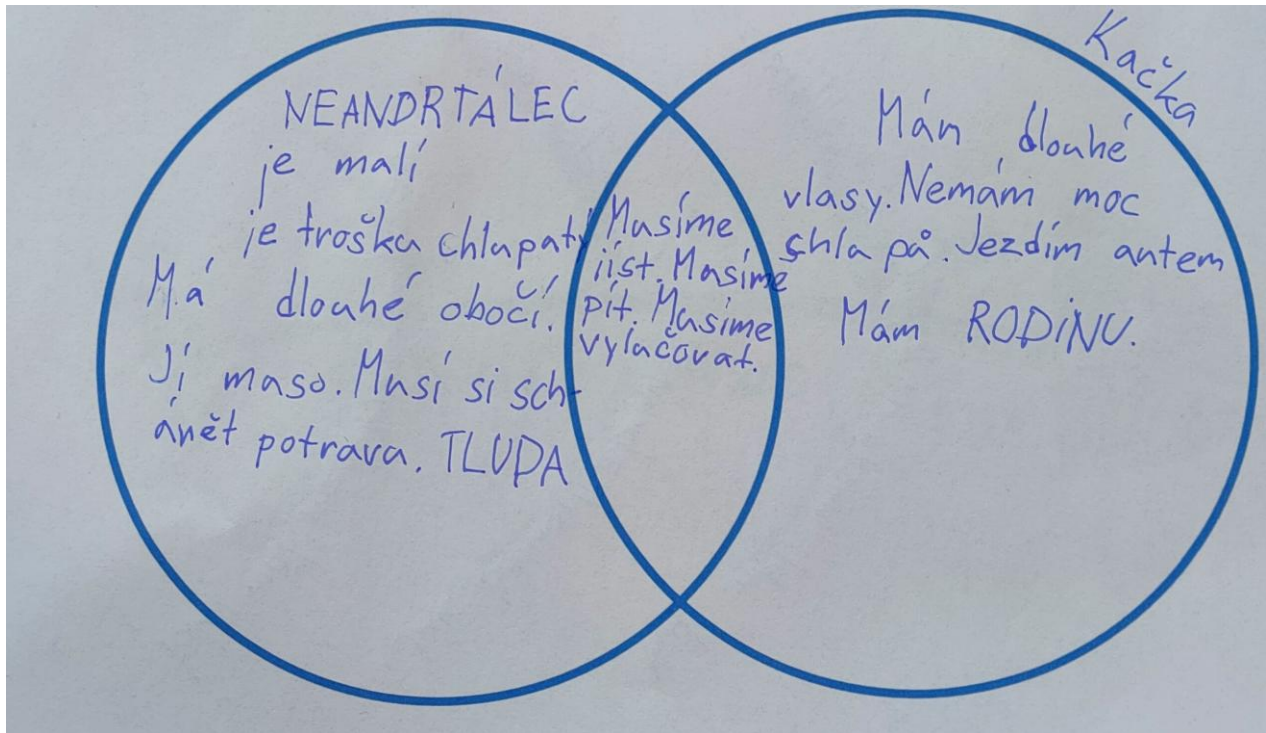 NEANDRTÁLEC
je malí
je troška chlupatý
Má dlouhé obočí.
Jí maso. Musí si sch-
ánět potrava. TLUPA
Musíme
jíst. Musíme
pít. Musíme
vylučovat.
Kačka
Mám dlouhé
vlasy. Nemám moc
chla pů. Jezdím autem
Mám RODiNU.